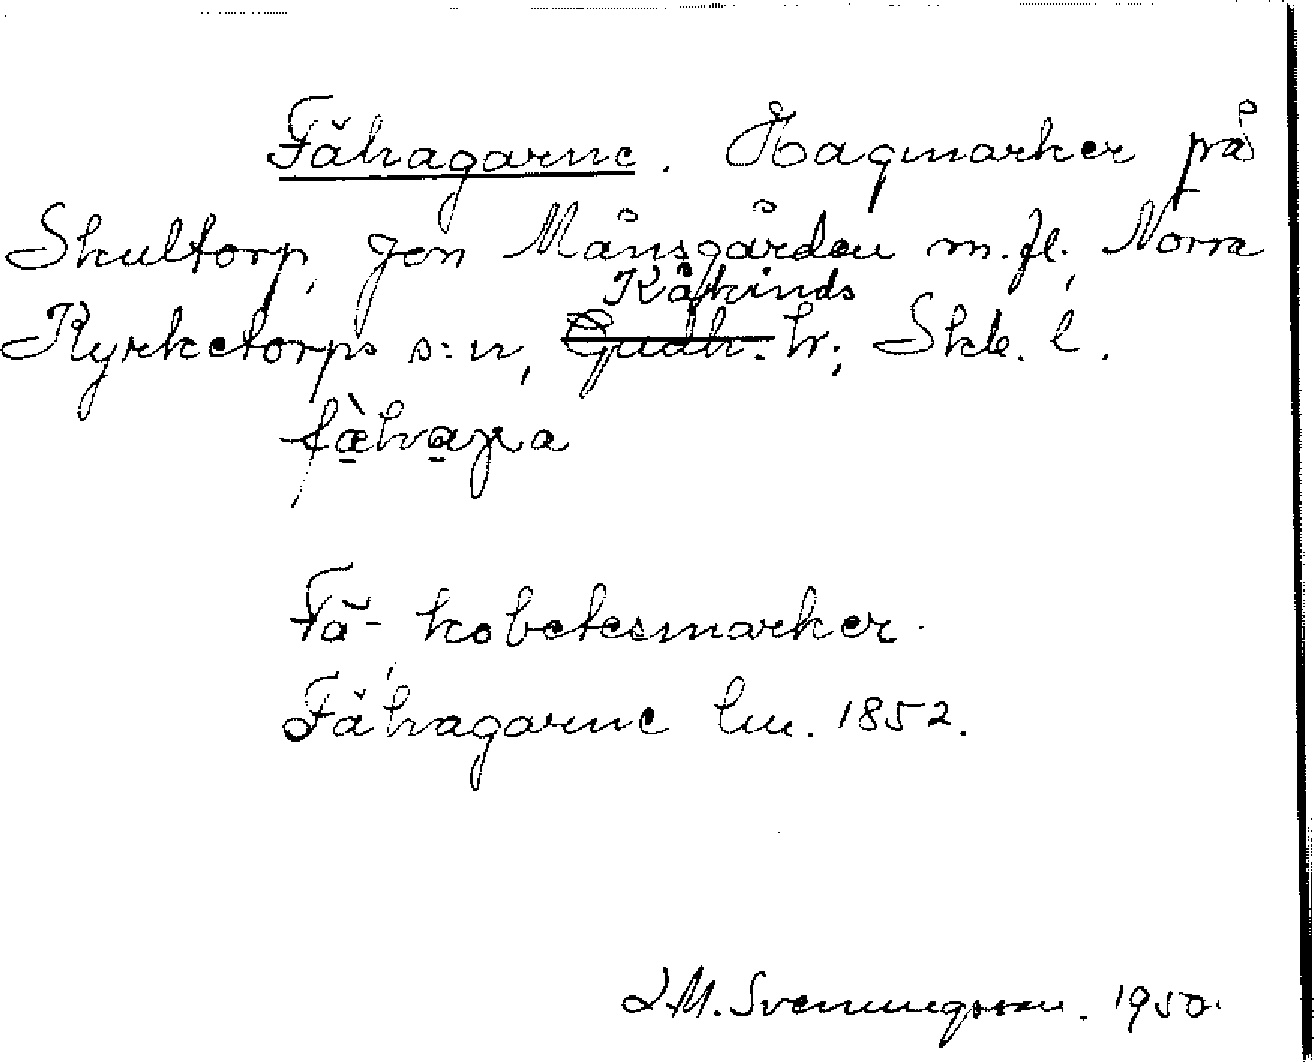 Fähagarne. Hagmarker på
Skultorp, Jon Månsgården m.fl., Norra
Kyrketorps s:n, Kåkinds hr; Skb. l.
fàhaga
Fä- kobetesmarker.
Fähagarne lm. 1852.
J.M. Svenningsson. 1950.